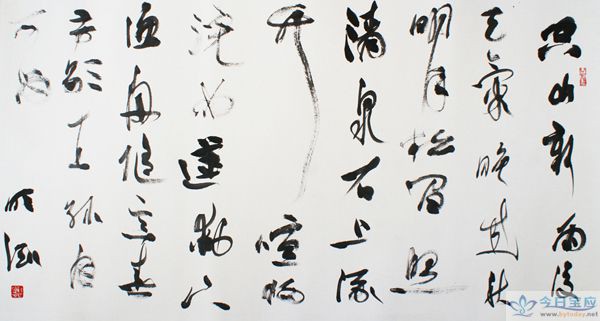 空山新雨後
天氣晚來秋
明月松間照
清泉石上流
竹喧歸
浣女蓮動下
漁舟隨意春
芳歇王孫自
可留
今日宝应
www.bytoday.net